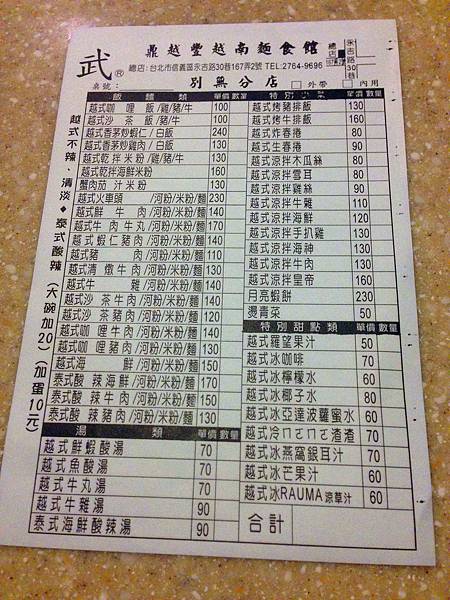 武®
鼎越豐越南麵食館
總店:台北市信義區永吉路30巷167弄2號 TEL:2764-9696
總店
永吉路30巷
桌號:
別無分店
外帶
內用
越式不辣、清淡◆泰式酸辣(大碗加20)(加蛋10元)
飯麵類 單價 數量
越式咖哩飯/雞/豬/牛 100
越式沙茶飯/豬/牛 100
越式香茅炒蝦仁/白飯 240
越式香茅炒雞肉/白飯 130
越式乾拌米粉/雞/豬/牛 130
越式乾拌海鮮米粉 160
蟹肉茄汁米粉 130
越式火車頭/河粉/米粉/麵 230
越式鮮牛肉/河粉/米粉/麵 140
越式牛肉牛丸/河粉/米粉/麵 170
越式蝦仁豬肉/河粉/米粉/麵 140
越式豬肉/河粉/米粉/麵 110
越式清燉牛肉/河粉/米粉/麵 130
越式牛雜/河粉/米粉/麵 140
越式沙茶牛肉/河粉/米粉/麵 140
越式沙茶豬肉/河粉/米粉/麵 120
越式咖哩牛肉/河粉/米粉/麵 140
越式咖哩豬肉/河粉/米粉/麵 130
越式海鮮/河粉/米粉/麵 150
泰式酸辣海鮮/河粉/米粉/麵 170
泰式酸辣牛肉/河粉/米粉/麵 150
泰式酸辣豬肉/河粉/米粉/麵 130
湯類 單價 數量
越式鮮蝦酸湯 70
越式魚酸湯 70
越式牛丸湯 70
越式牛雜湯 90
泰式海鮮酸辣湯 90
特別小菜 單價 數量
越式烤豬排飯 130
越式烤牛排飯 160
越式炸春捲 80
越式生春捲 90
越式涼拌木瓜絲 80
越式涼拌雲耳 80
越式涼拌雞絲 90
越式涼拌牛雜 110
越式涼拌海鮮 120
越式涼拌手扒雞 130
越式涼拌海神 130
越式涼拌牛肉 130
越式涼拌皇帝 160
月亮蝦餅 230
燙青菜 50
特別甜點類 單價 數量
越式羅望果汁 50
越式冰咖啡 70
越式冰檸檬水 60
越式冰椰子水 80
越式冰亞達波羅蜜水 60
越式冷ㄇㄛㄇㄛ渣渣 70
越式冰燕窩銀耳汁 70
越式冰芒果汁 60
越式冰RAUMA涼草汁 60
合計